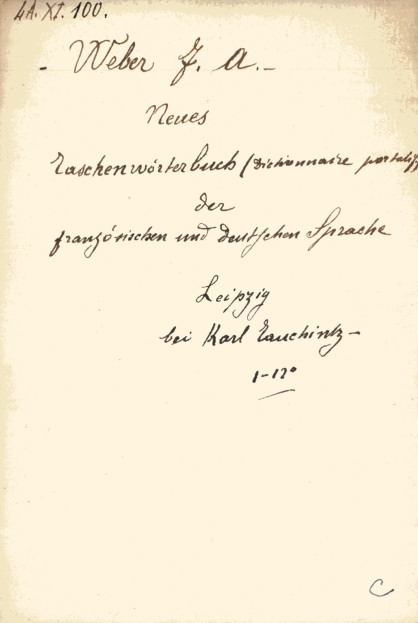 4A. XI. 100.
- Weber J. A. -
Neues
Taschenwörterbuch (Dictionnaire portatif
der
französischen und deutschen Sprache
Leipzig
bei Karl Tauchnitz -
1-12°
C